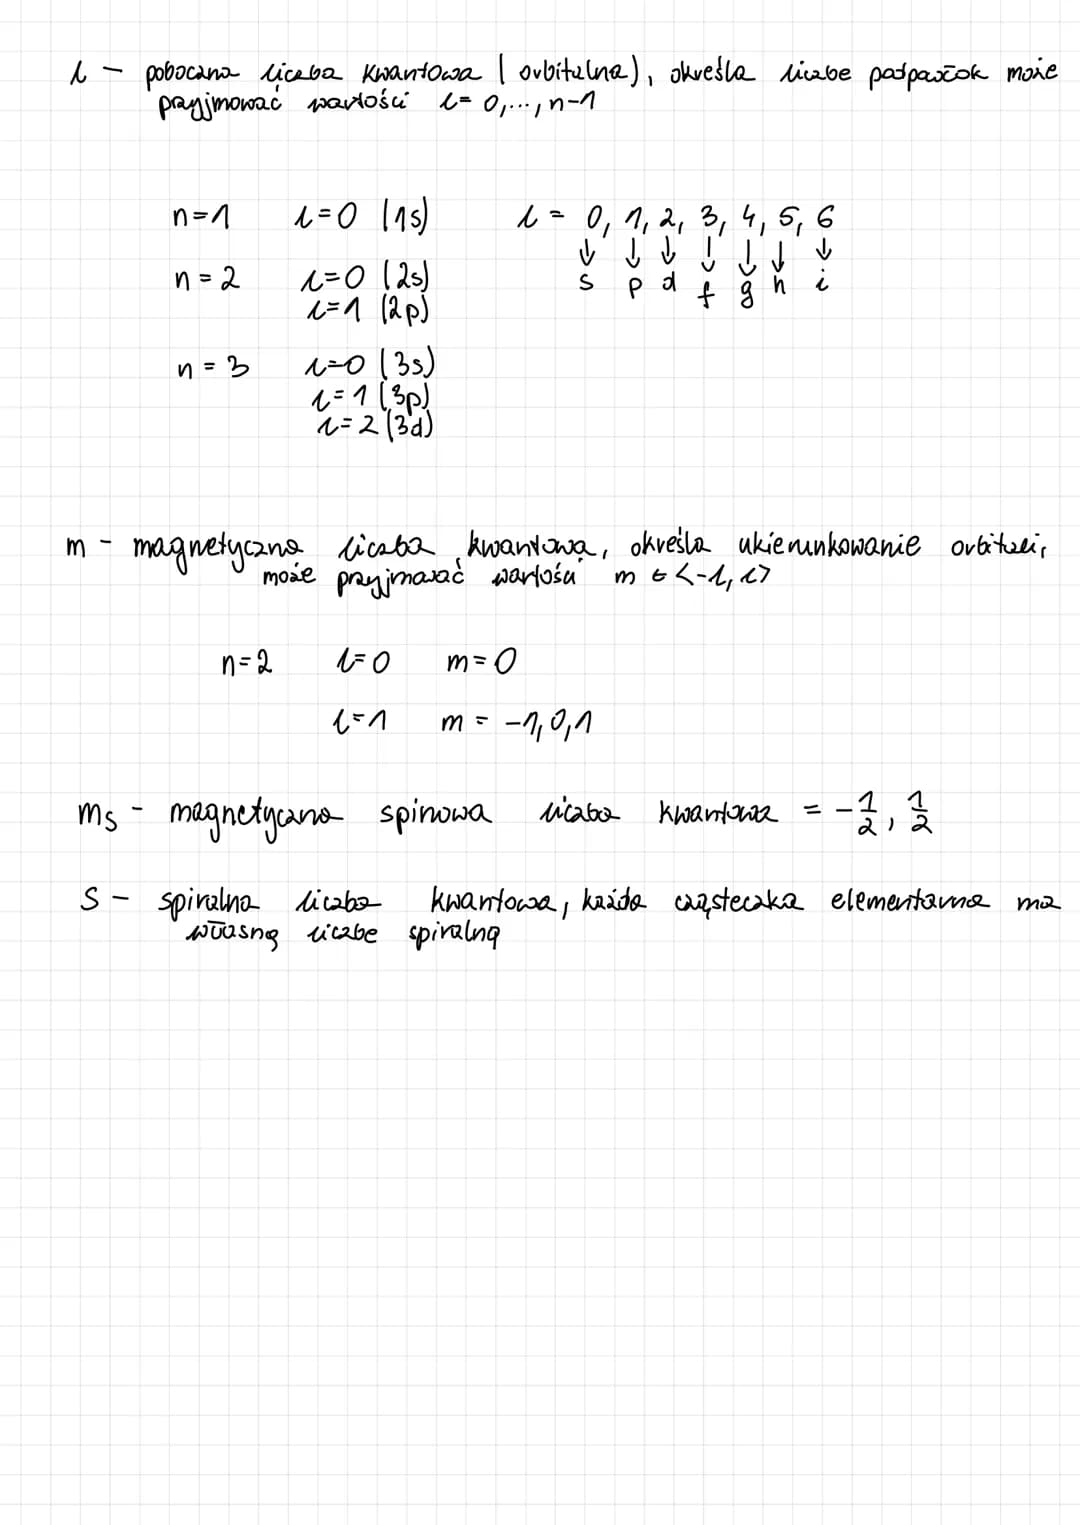 l - poboczna liczba kwantowa (orbitalna), określa liczbe podpowłok może
przyjmować wartości l= 0,..., n-1
n=1 l=0 (1s) l = 0, 1, 2, 3, 4, 5, 6
↓ ↓ ↓ ↓ ↓ ↓ ↓
n = 2 l=0 (2s) s p d f g h i
l=1 (2p)
n = 3 l=0 (3s)
l=1 (3p)
l=2 (3d)
m - magnetyczna liczba kwantowa, określa ukierunkowanie orbitali,
może przyjmować wartości m ∈ <-l, l>
n=2 l=0 m=0
l=1 m = -1, 0, 1
ms - magnetyczna spinowa liczba kwantowa = -1/2, 1/2
S - spiralna liczba kwantowa, każda cząsteczka elementarna ma
własną liczbe spiralną